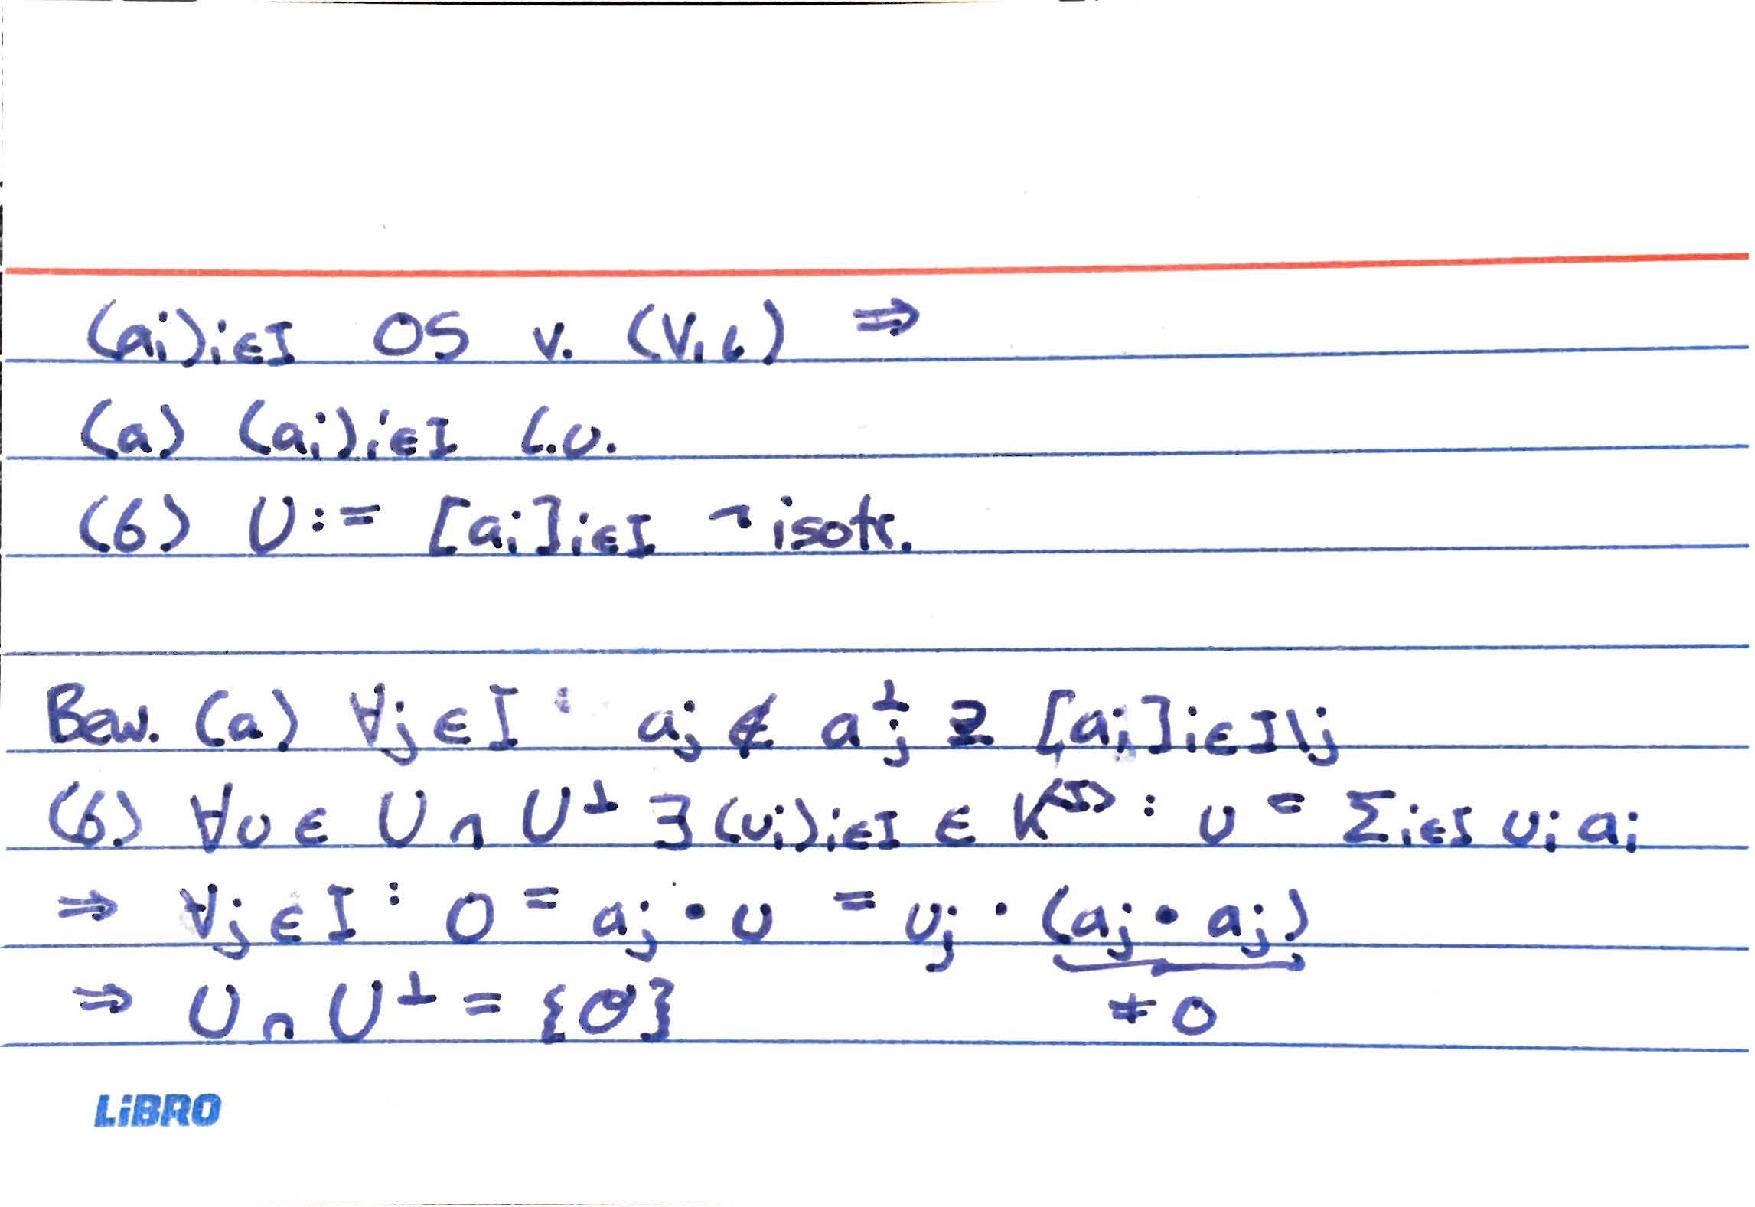 (aᵢ)ᵢ∈I OS v. (V, b) ⇒
(a) (aᵢ)ᵢ∈I l.u.
(b) U := [aᵢ]ᵢ∈I ¬ isotr.
Bew. (a) ∀j ∈ I : aⱼ ∉ aⱼ^⊥ ⊇ [aᵢ]ᵢ∈I\j
(b) ∀u ∈ U ∩ U^⊥ ∃ (uᵢ)ᵢ∈I ∈ K^⟨I⟩ : u = Σᵢ∈I uᵢ aᵢ
⇒ ∀j ∈ I : 0 = aⱼ • u = uⱼ · (aⱼ • aⱼ)
⇒ U ∩ U^⊥ = {σ} ≠ 0
LiBRO